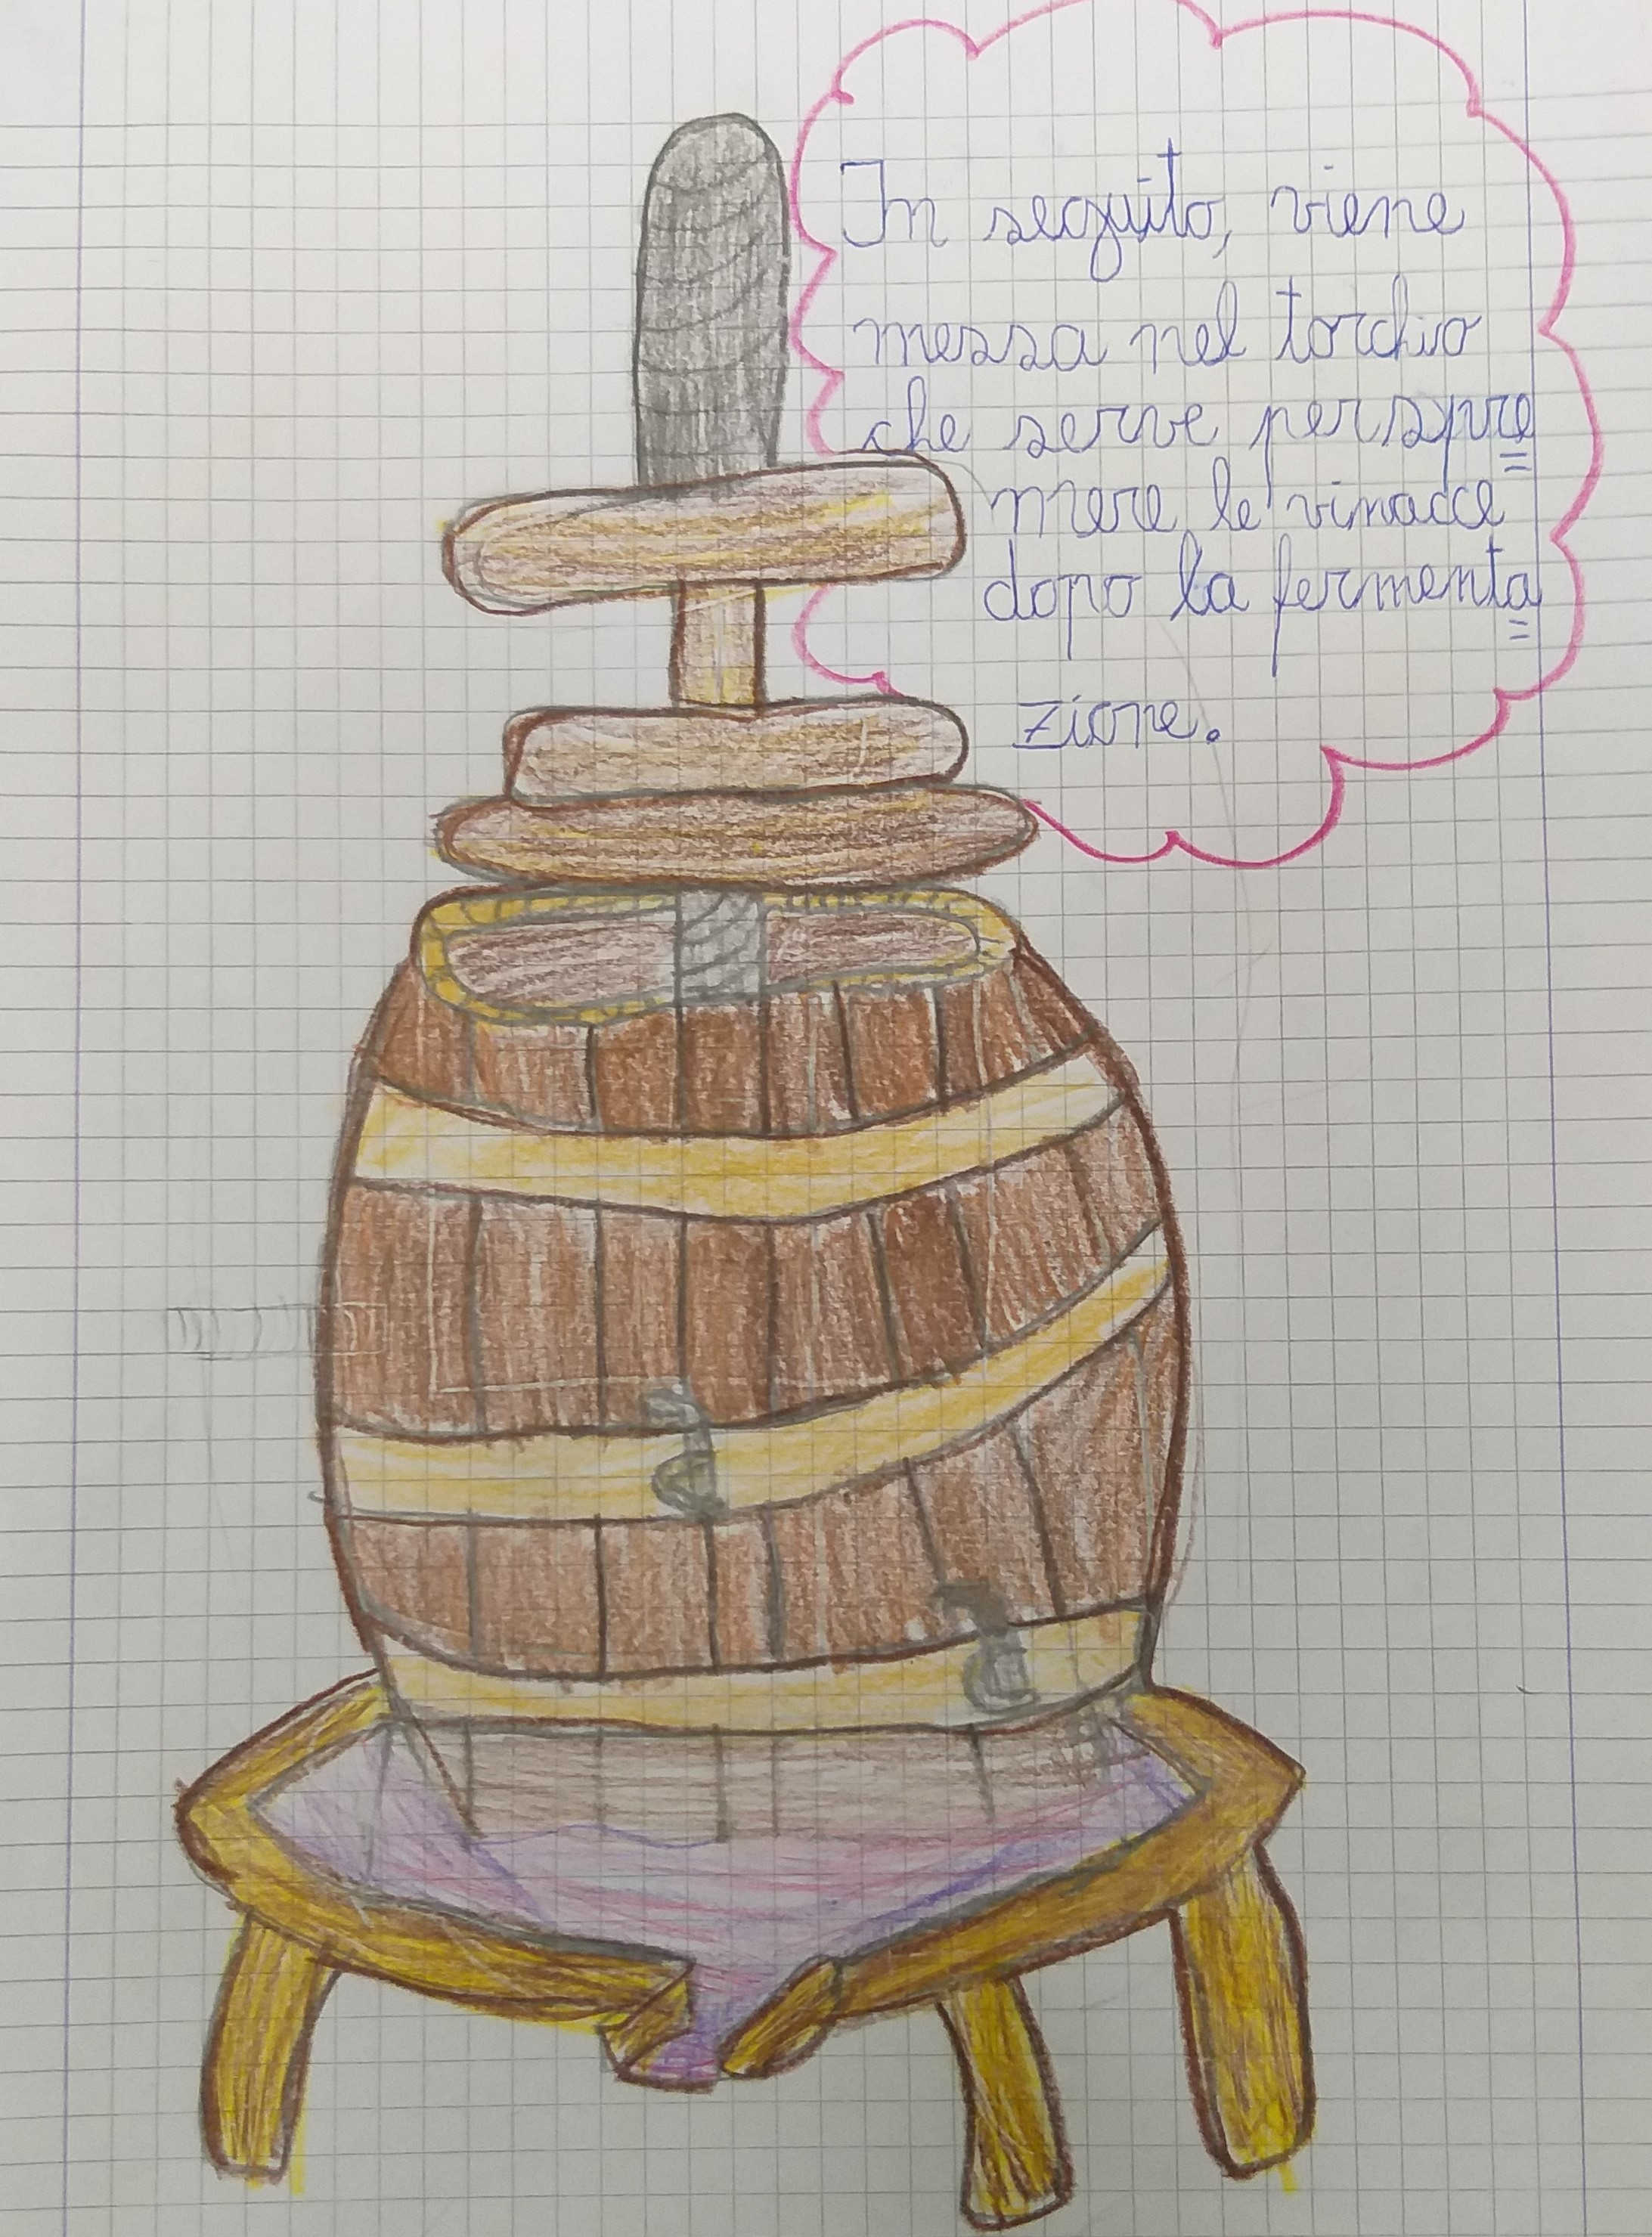 In seguito, viene
messa nel torchio
che serve per spre=
mere le vinacce
dopo la fermenta=
zione.